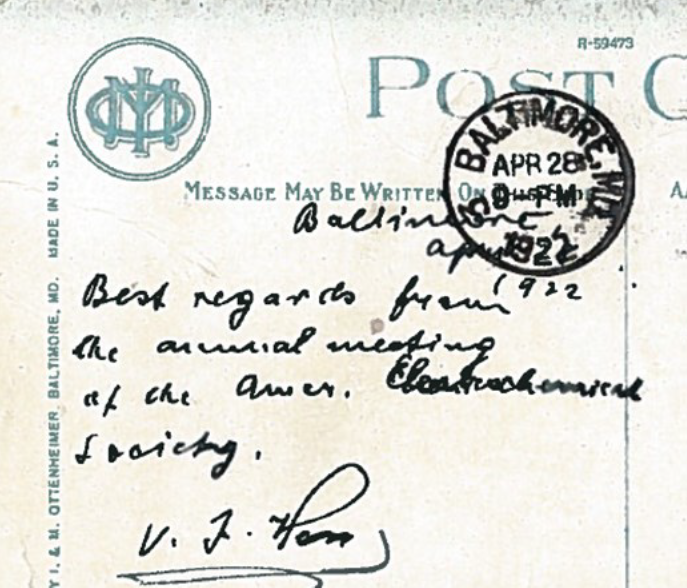 R-59473
POST C
BALTIMORE, MD.
APR 28
9-PM
1922
MESSAGE MAY BE WRITTEN ON THIS SIDE
Baltimore
1922
Best regards from
the annual meeting
of the Amer. Electrochemical
Society.
V. F. Hess
Y I. & M. OTTENHEIMER, BALTIMORE, MD. MADE IN U. S. A.